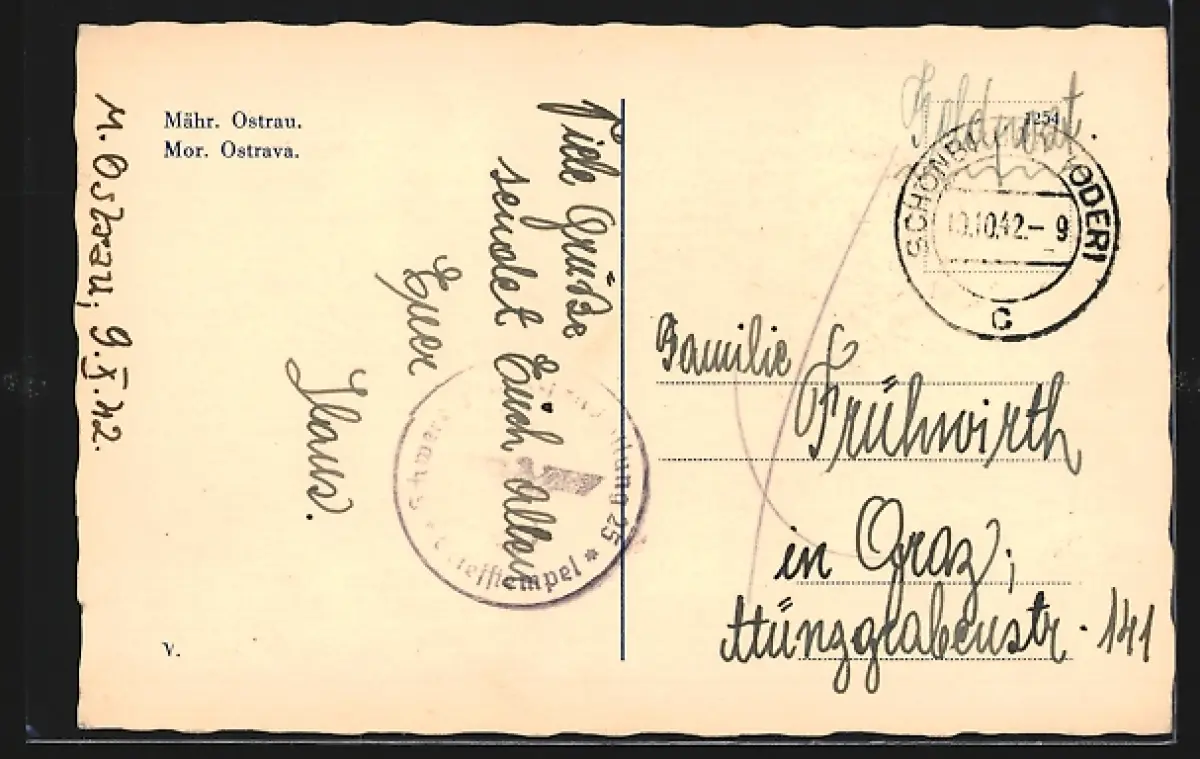 Mähr. Ostrau.
Mor. Ostrava.
M. Ostrau, 9. X. 42.
Viele Grüße
sendet Euch allen
Euer
V.
Feldpost.
1254
SCHÖNB ODER)
10.10.42.- 9
c
25 * Briefstempel
Familie
Frühwirth
in Graz,
Münzgrabenstr. 141